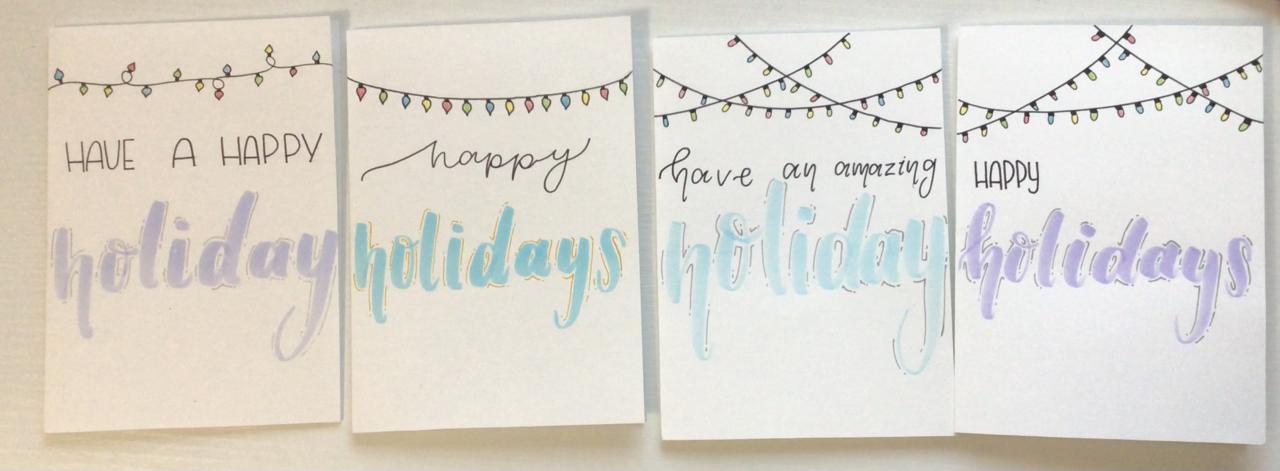 HAVE A HAPPY
holiday
happy
holidays
have an amazing
holiday
HAPPY
holidays